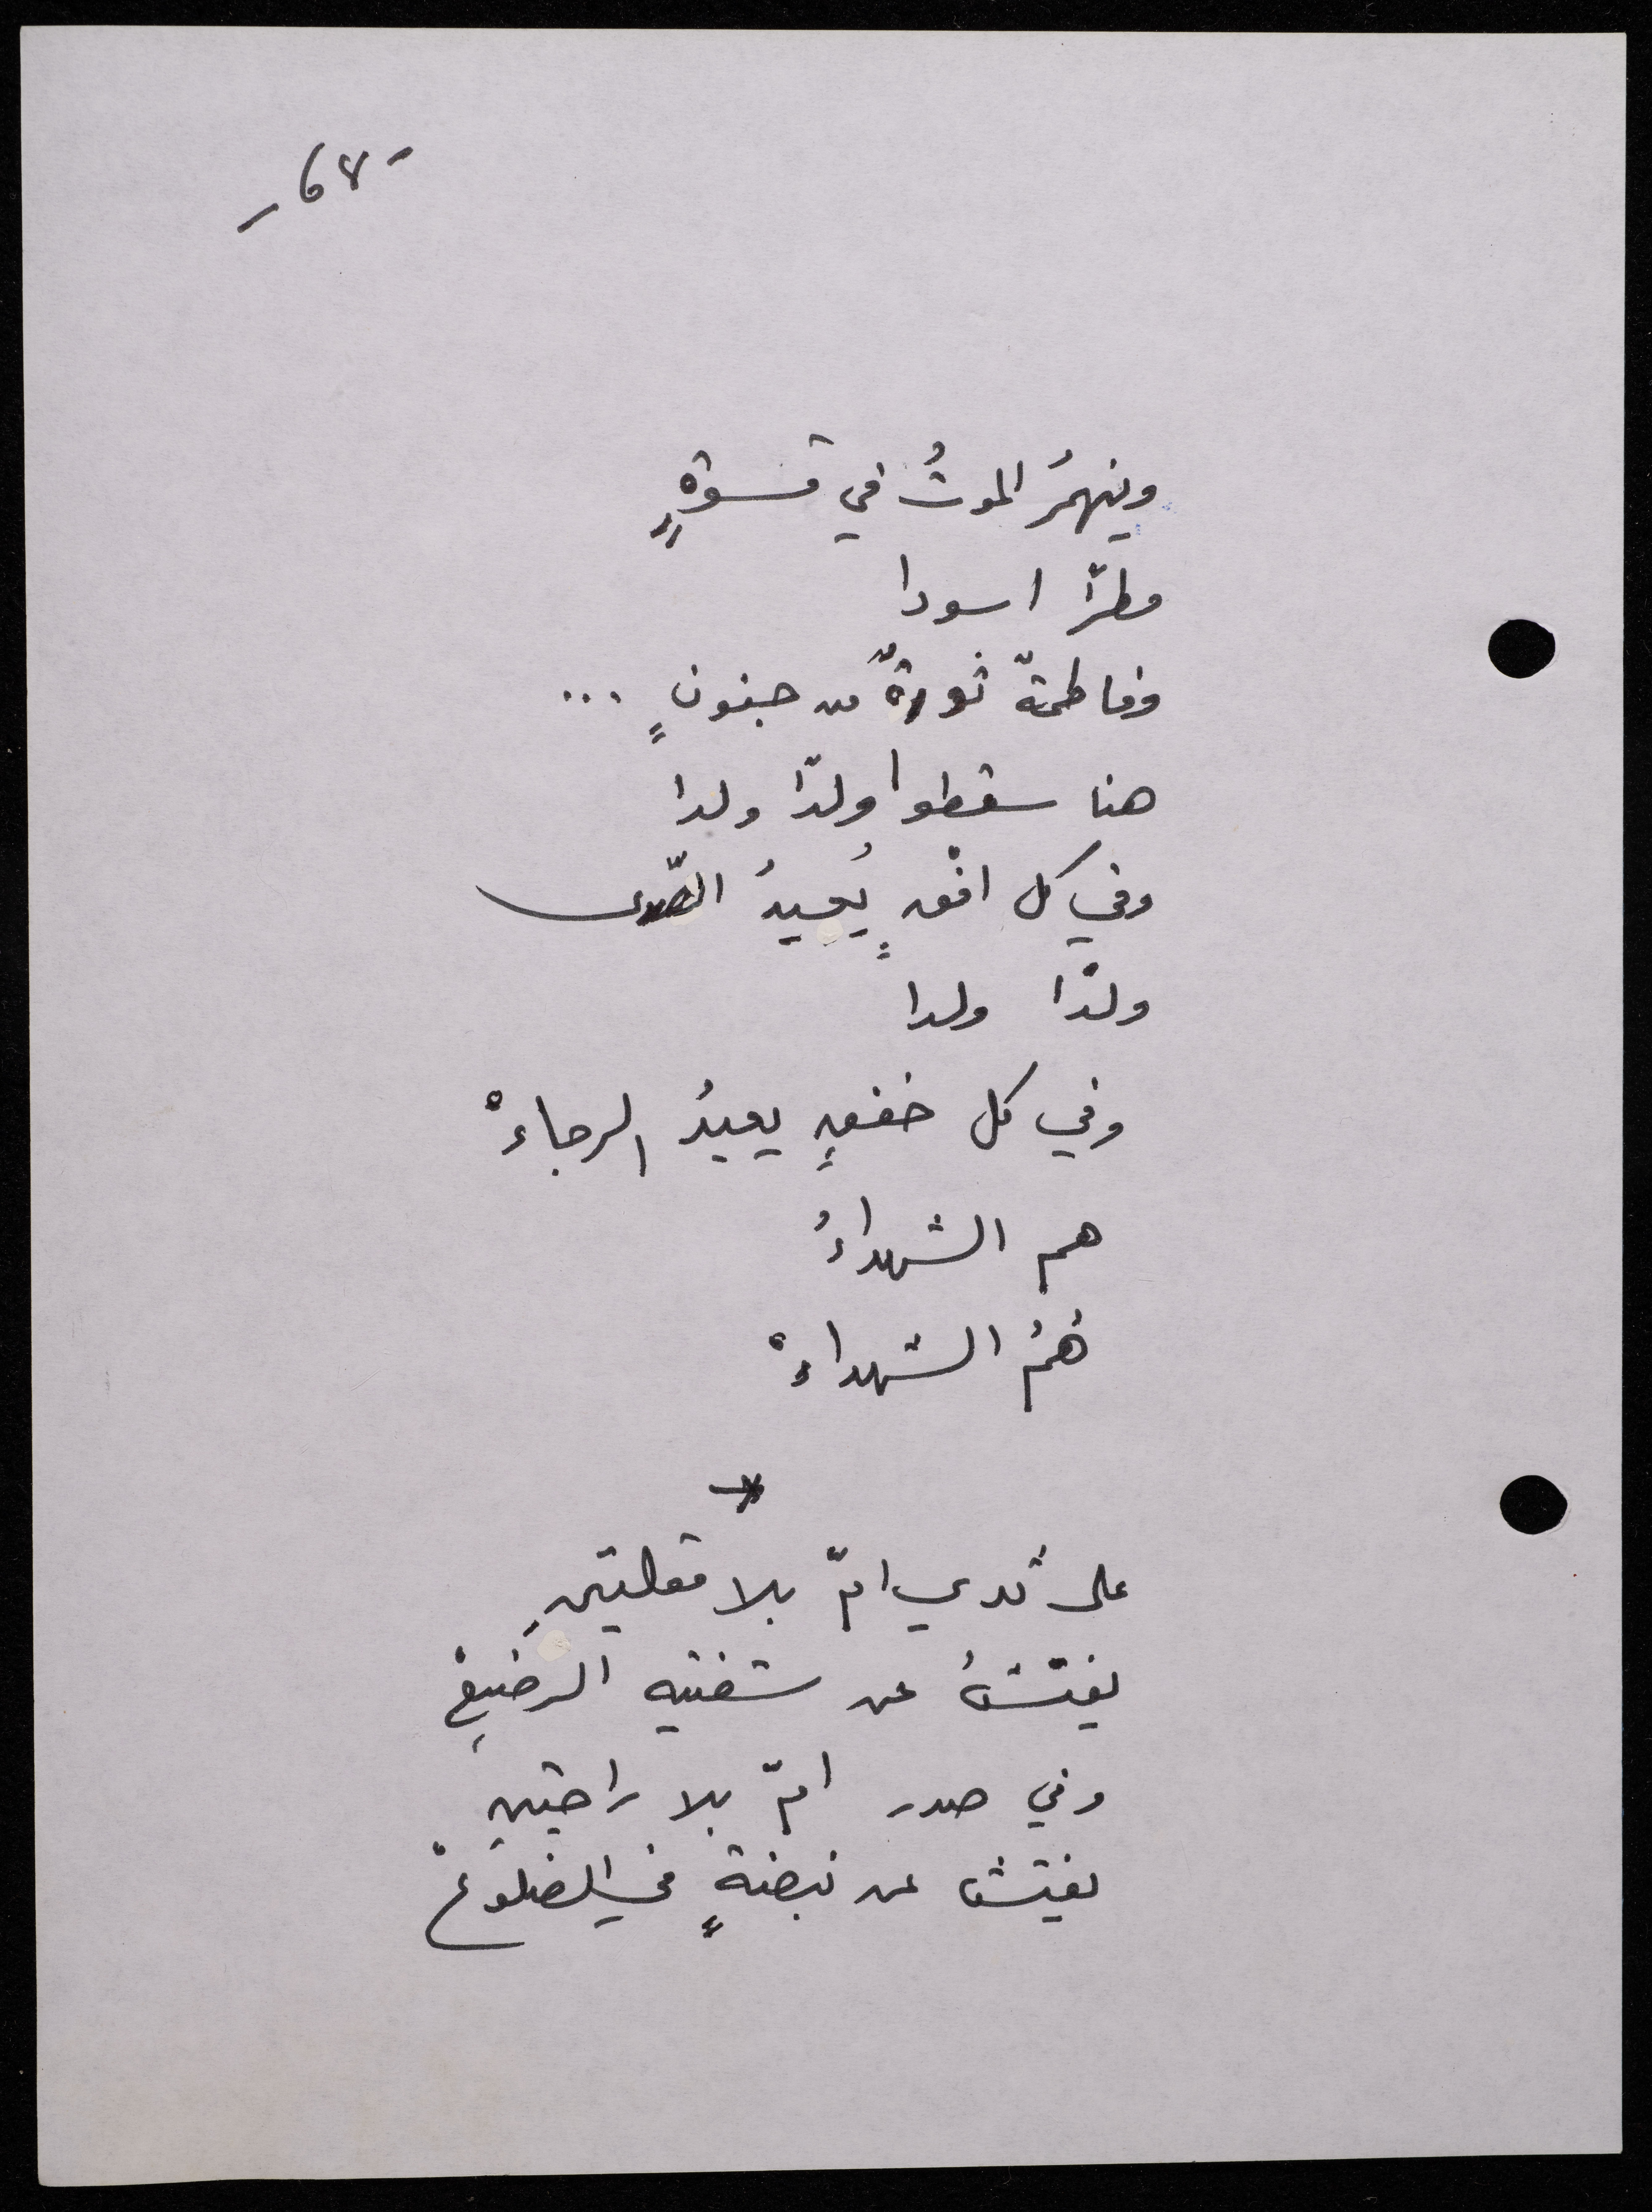 -68-
وينهمرُ الموتُ في قسوةٍ
مطرًا اسودا
وفاطمةٌ ثورةٌ من جنونٍ ...
هنا سقطوا ولدًا ولدا
وفي كل افقٍ يُعيدُ الصّدى
ولدًا ولدا
وفي كل خفقٍ يعيدُ الرجاءْ
هم الشهداءُ
هُمُ الشهداءْ
*
على ثدي امّ بلا مقلتينِ
يفتّشُ عن شفتيه الرضيعْ
وفي صدر امّ بلا راحتينِ
يفتش عن نبضةٍ في الضلوعْ